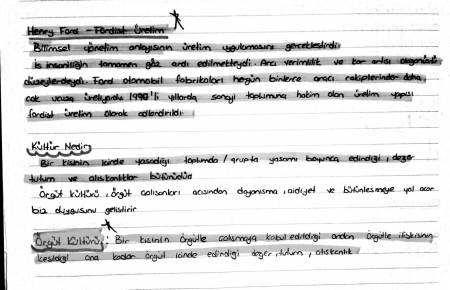 Henry Ford - Fordist Üretim
Bilimsel yönetim anlayışının üretim uygulamasını gerçekleştirdi.
İş insanlığın tamamen göz ardı edilmekteydi. Ancı verimlilik ve kar artışı olağanüstü
düzeylerdeydi. Ford otomobil fabrikaları hergün binlerce aracı rakiplerinden daha
çok ucuza üretiyordu 1990'li yıllarda sanayi toplumuna hakim olan üretim yapısı
fordist üretim olarak adlandırıldı.
Kültür Nedir
Bir kişinin içinde yaşadığı toplumda / grupta yaşamı boyunca edindiği, değer
tutum ve alışkanlıklar bütünüdür
Örgüt kültürü, örgüt çalışanları açısından dayanışma, aidiyet ve bütünleşmeye yol açar
biz duygusunu geliştirir
Örgüt Kültürü: Bir kişinin örgütte çalışmaya kabul edildiği andan örgütle ilişkisinin
kesildiği ana kadar örgüt içinde edindiği değer, tutum, alışkanlık